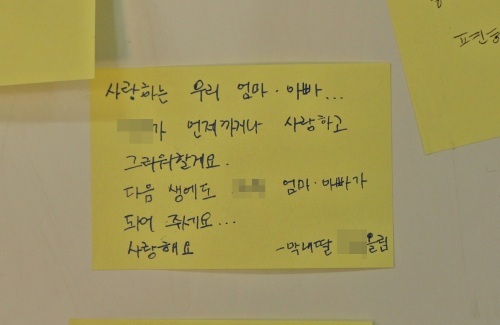 사랑하는 우리 엄마·아빠...
가 언제까지나 사랑하고
그리워할게요.
다음 생에도 엄마·아빠가
되어 주세요...
사랑해요 -막내딸 올림
표현